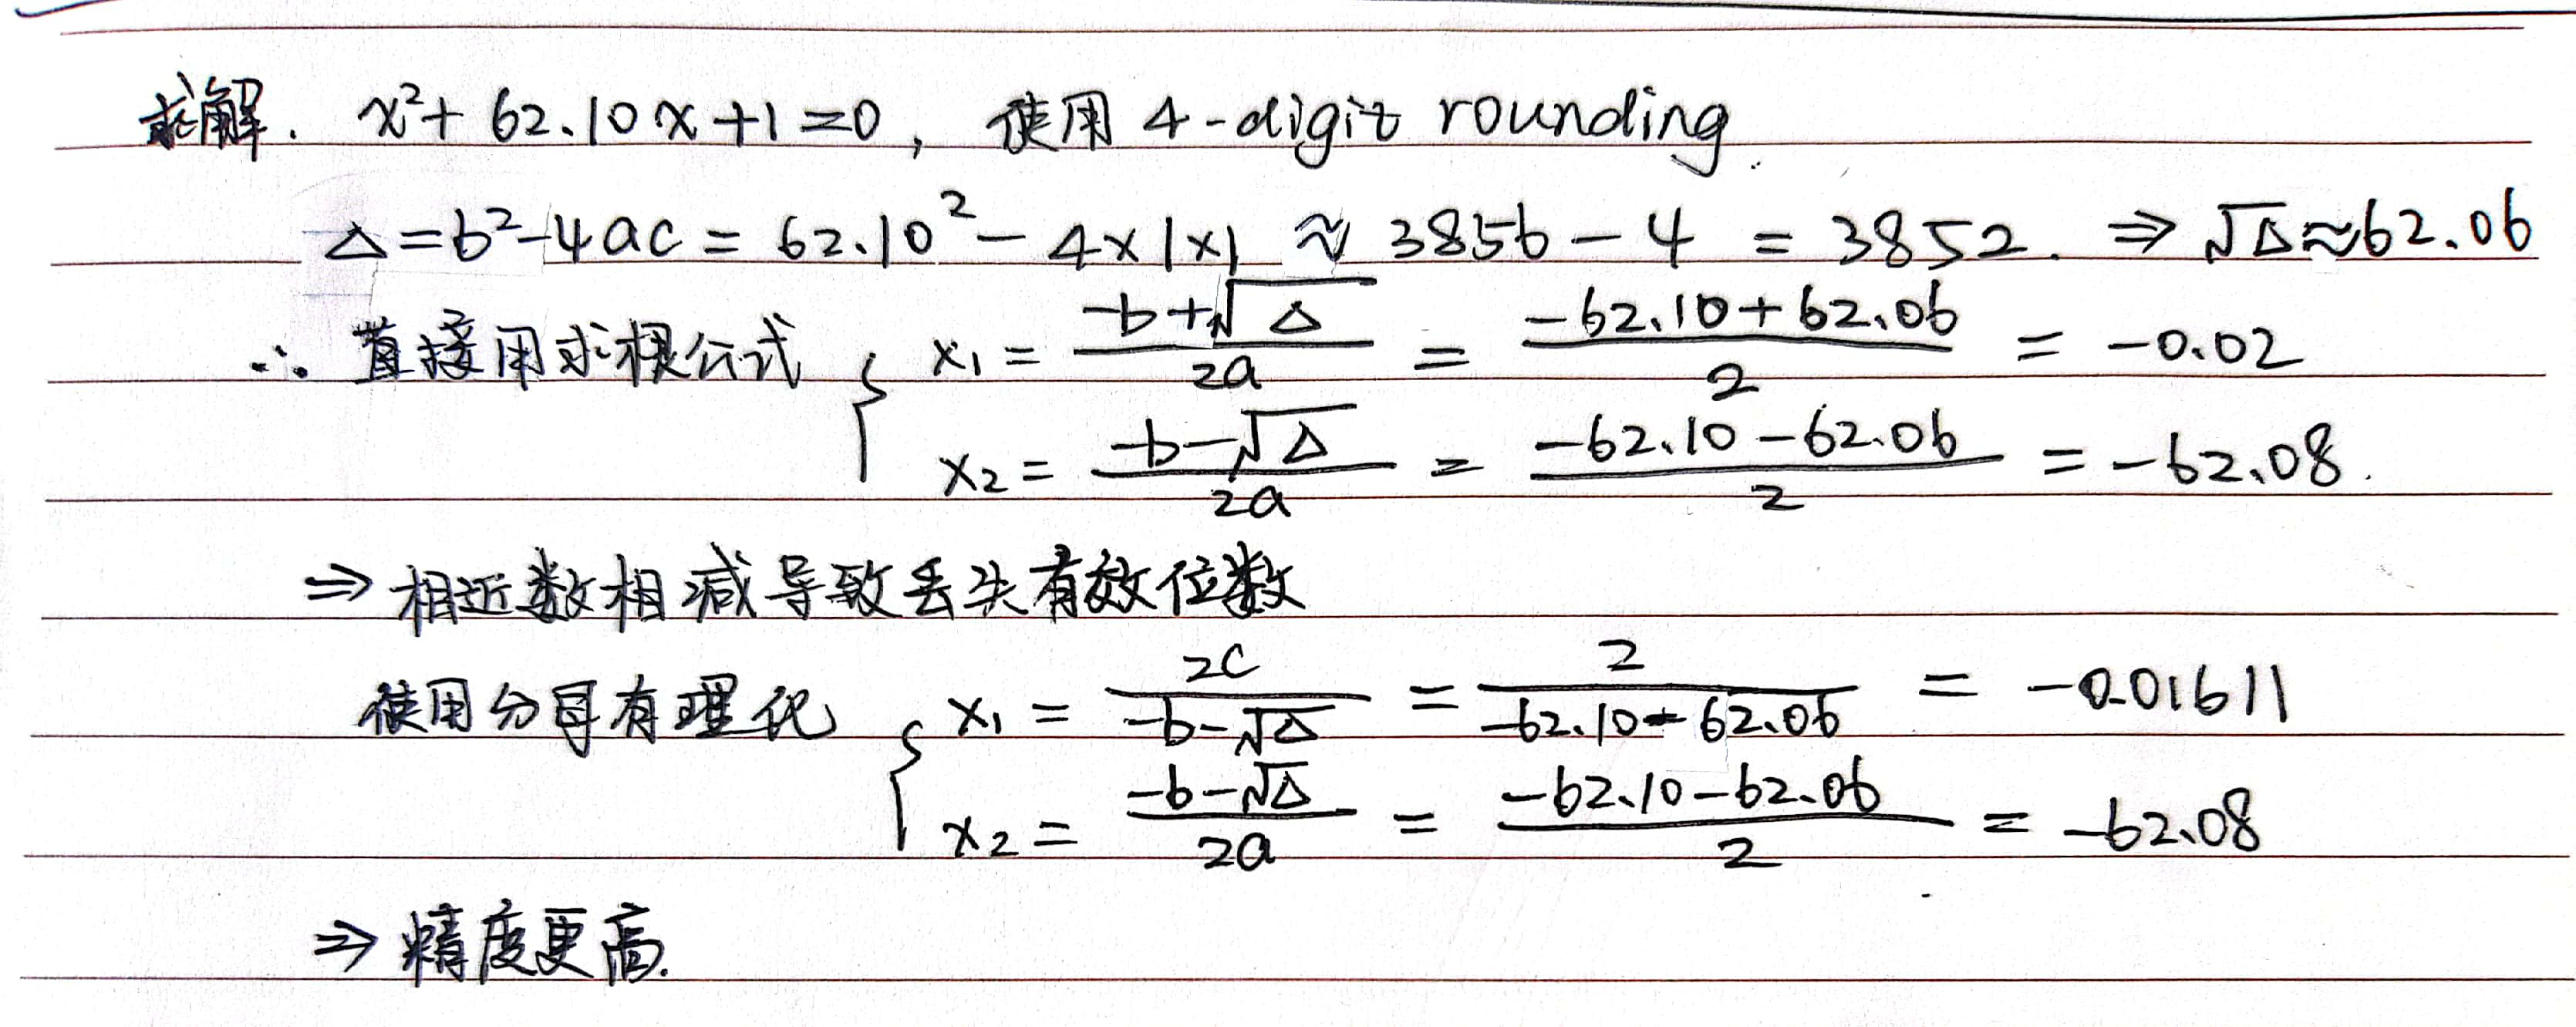 求解. x²+62.10x+1=0, 使用 4-digit rounding.
△=b²-4ac = 62.10² - 4×1×1 ≈ 3856-4 = 3852. ⇒ √△≈62.06
∴ 直接用求根公式 { x₁ = (-b+√△)/(2a) = (-62.10+62.06)/2 = -0.02
x₂ = (-b-√△)/(2a) = (-62.10-62.06)/2 = -62.08.
⇒ 相近数相减导致丢失有效位数
使用分母有理化 { x₁ = 2c/(-b-√△) = 2/(-62.10-62.06) = -0.01611
x₂ = (-b-√△)/(2a) = (-62.10-62.06)/2 = -62.08
⇒ 精度更高.